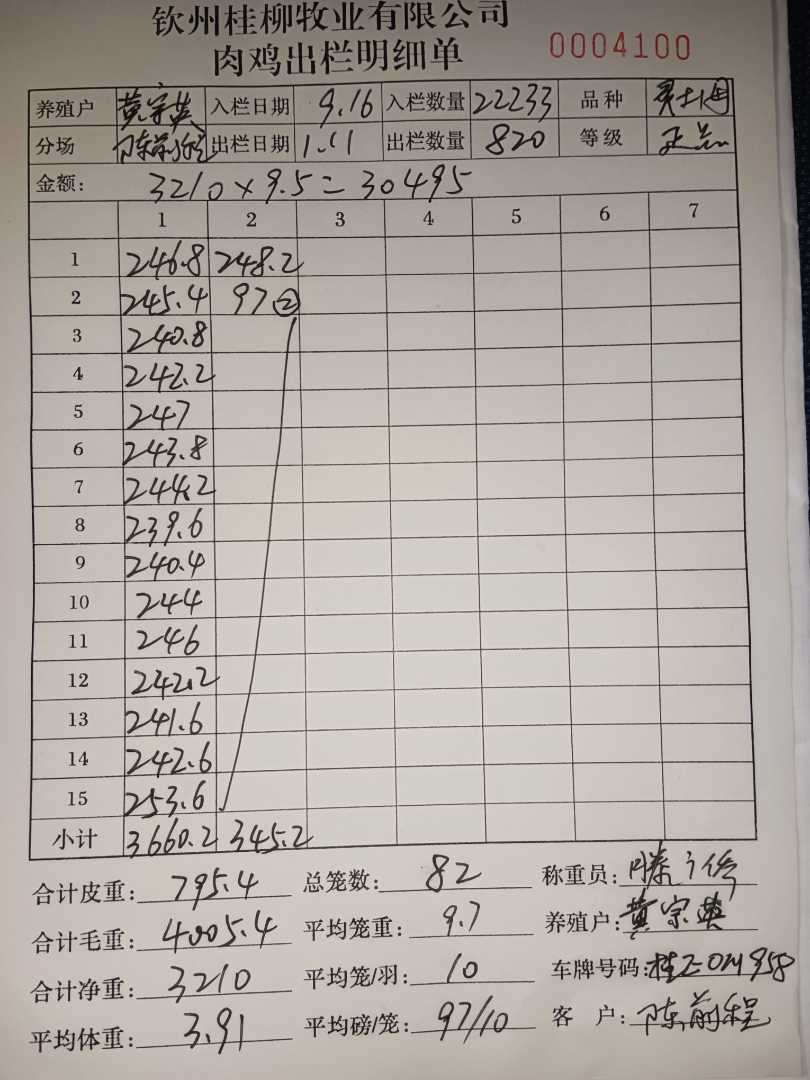 钦州桂柳牧业有限公司
肉鸡出栏明细单 0004100
养殖户 黄宗英 入栏日期 9.16 入栏数量 22233 品种
分场 陈前程 出栏日期 1.11 出栏数量 820 等级 正品
金额: 3210×9.5=30495
1 2 3 4 5 6 7
1 246.8 248.2
2 245.4 97②
3 240.8
4 242.2
5 247
6 243.8
7 244.2
8 239.6
9 240.4
10 244
11 246
12 242.2
13 241.6
14 242.6
15 253.6
小计 3660.2 345.2
合计皮重: 795.4 总笼数: 82 称重员:
合计毛重: 4005.4 平均笼重: 9.7 养殖户: 黄宗英
合计净重: 3210 平均笼/羽: 10 车牌号码: 桂Z0M958
平均体重: 3.91 平均磅/笼: 97/10 客户: 陈前程